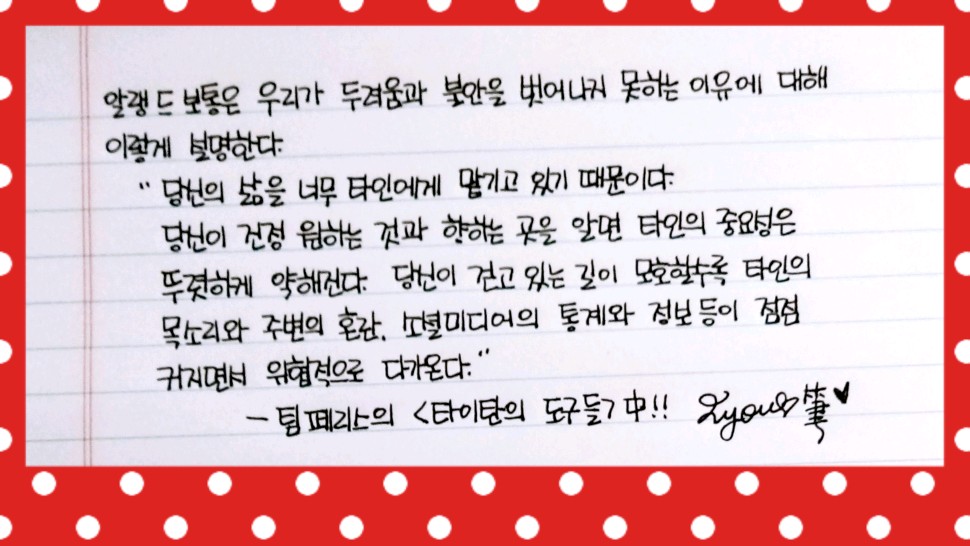 알랭 드 보통은 우리가 두려움과 불안을 벗어나지 못하는 이유에 대해
이렇게 설명한다.
“당신의 삶을 너무 타인에게 맡기고 있기 때문이다.
당신이 진정 원하는 것과 향하는 곳을 알면 타인의 중요성은
뚜렷하게 약해진다. 당신이 걷고 있는 길이 모호할수록 타인의
목소리와 주변의 혼란, 소셜미디어의 통계와 정보 등이 점점
커지면서 위협적으로 다가온다.”
- 팀 페리스의 <타이탄의 도구들> 中!! 筆♥